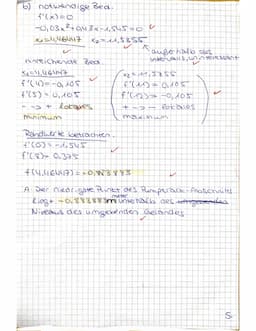 b) notwendige Bed.
f'(x)=0
-0,03x²+0,48x-1,545=0
x₁=4,46447 x₂=11,5355
außerhalb des Intervalls, uninteressant
hinreichende Bed.
x₁=4,46447
f'(4)=-0,105
f'(5)=0,105
- → + lokales
minimum
x₂=11,5355
f'(11)=0,105
f'(12)=-0,105
+ → - lokales
maximum
Randwerte betrachten.
f'(0)=-1,545
f'(8)=0,375
f(4,46447)=-0,883883
A: Der niedrigste Punkt des Pumptrack-Abschnitts
liegt -0,883883m unterhalb des
Niveaus des umgebenden Geländes
5